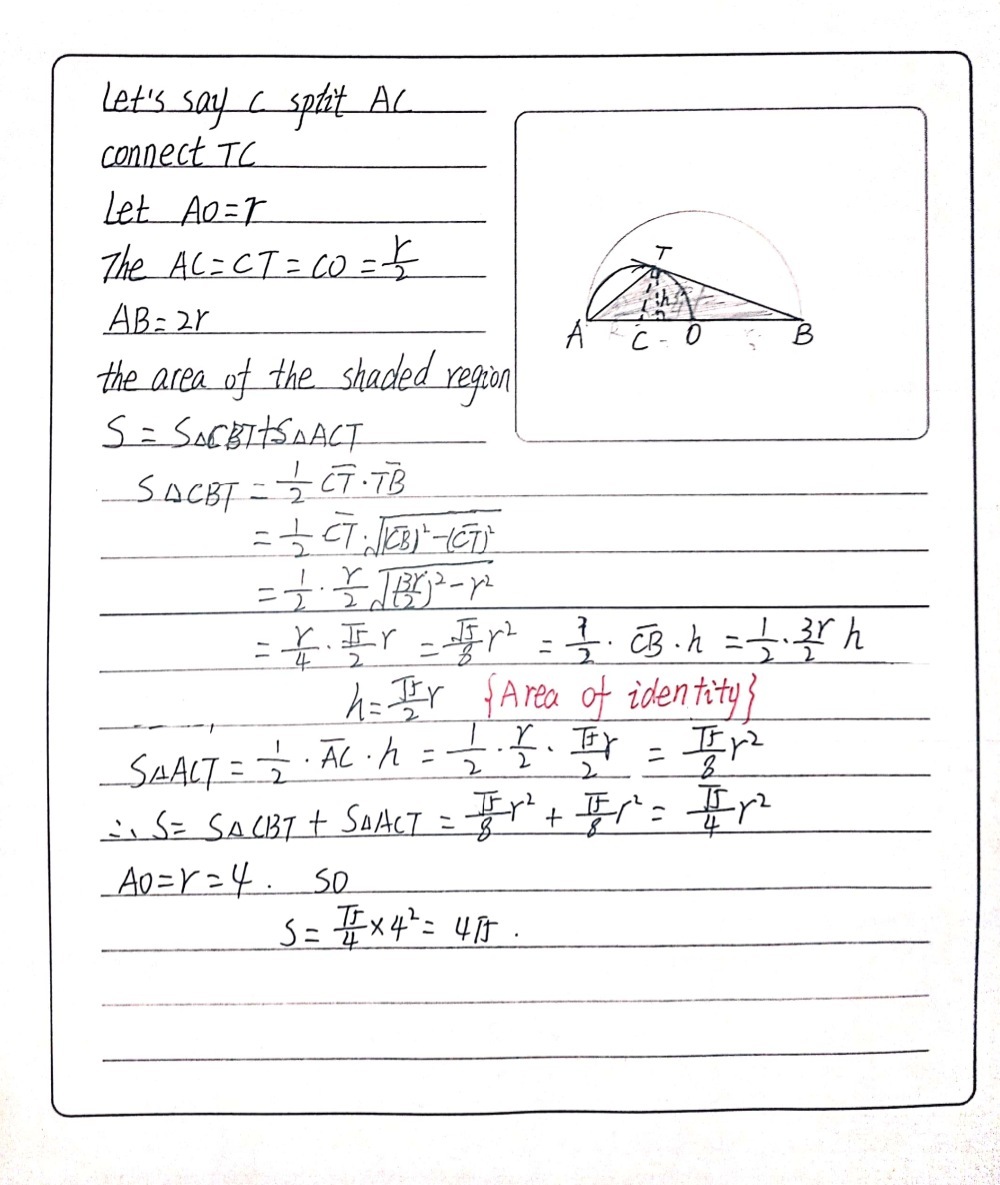 Let's say C split AC
connect TC
Let AO=r
The AC=CT=CO=r/2
AB=2r
the area of the shaded region
S = S△CBT+S△ACT
S△CBT = 1/2 C̅T̅·T̅B̅
= 1/2 C̅T̅·√((C̅B̅)²-(C̅T̅)²)
= 1/2 · r/2 √((3r/2)²-r²)
= r/4 · √5/2 r = √5/8 r² = 1/2 · C̅B̅ · h = 1/2 · 3r/2 h
h=√5/2 r {Area of identity}
S△ACT = 1/2 · A̅C̅ · h = 1/2 · r/2 · √5/2 r = √5/8 r²
∴ S= S△CBT + S△ACT = √5/8 r² + √5/8 r² = √5/4 r²
AO=r=4. SO
S= √5/4 × 4² = 4√5.
T
h
A C O B